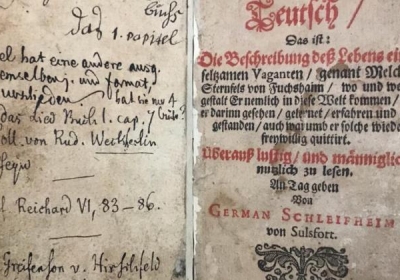 buchs-
das 1. capitel
hat eine andere ausg.
j. und format,
das lied Buch 1. cap. 7
von Rud. Weckherlin
Reichard VI, 83–86.
Greifenson v. Hirschfeld
Teutsch /
Das ist:
Die Beschreibung deß Lebens ein
seltzamen Vaganten / genant Melch
Sternfels von Fuchshaim / wo und we
gestalt Er nemlich in diese Welt kommen /
er darinn gesehen / gelernet / erfahren und
gestanden / auch warumb er solche wiede
freywillig quittirt.
Uberauß lustig / und männiglic
nutzlich zu lesen.
An Tag geben
Von
GERMAN SCHLEIFHEIM
von Sulsfort.